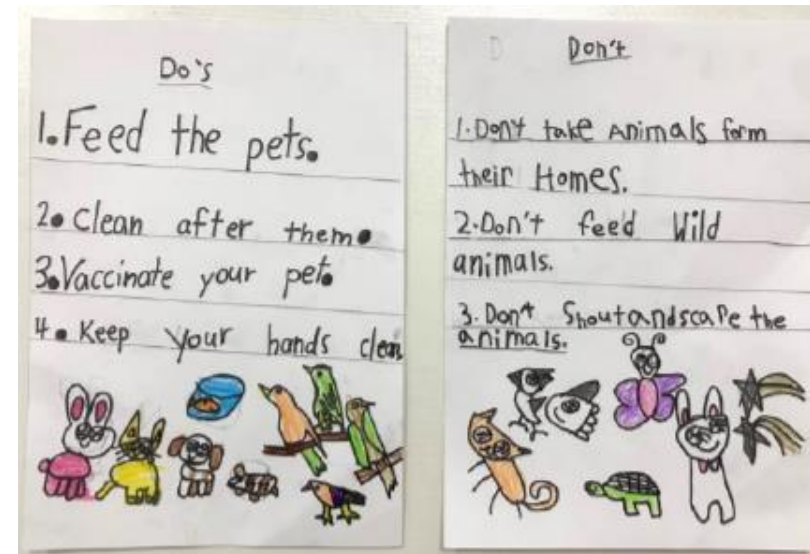 Do's
1. Feed the pets.
2. Clean after them.
3. Vaccinate your pet.
4. Keep your hands clean
Don't
1. Don't take Animals form
their Homes.
2. Don't feed Wild
animals.
3. Don't Shoutandscape the
animals.